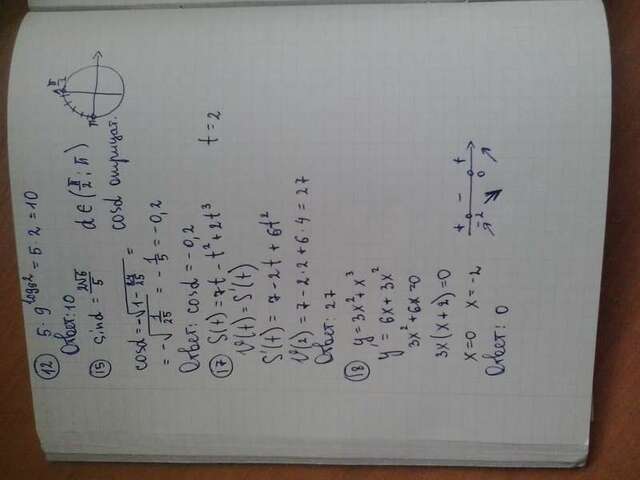 12 5 · 9^log₉2 = 5 · 2 = 10
Ответ: 10
15 sin α = 2√6/5 α ∈ (π/2; π)
cos α отрицат.
π/2
π
cos α = -√(1 - 24/25) =
= -√(1/25) = - 1/5 = -0,2
Ответ: cos α = -0,2
17 S(t) = 7t - t² + 2t³ t = 2
V(t) = S'(t)
S'(t) = 7 - 2t + 6t²
V(2) = 7 - 2·2 + 6·4 = 27
Ответ: 27
18 y = 3x² + x³
y' = 6x + 3x²
3x² + 6x = 0
3x(x + 2) = 0
x = 0 x = -2
+ - +
-2 0
Ответ: 0